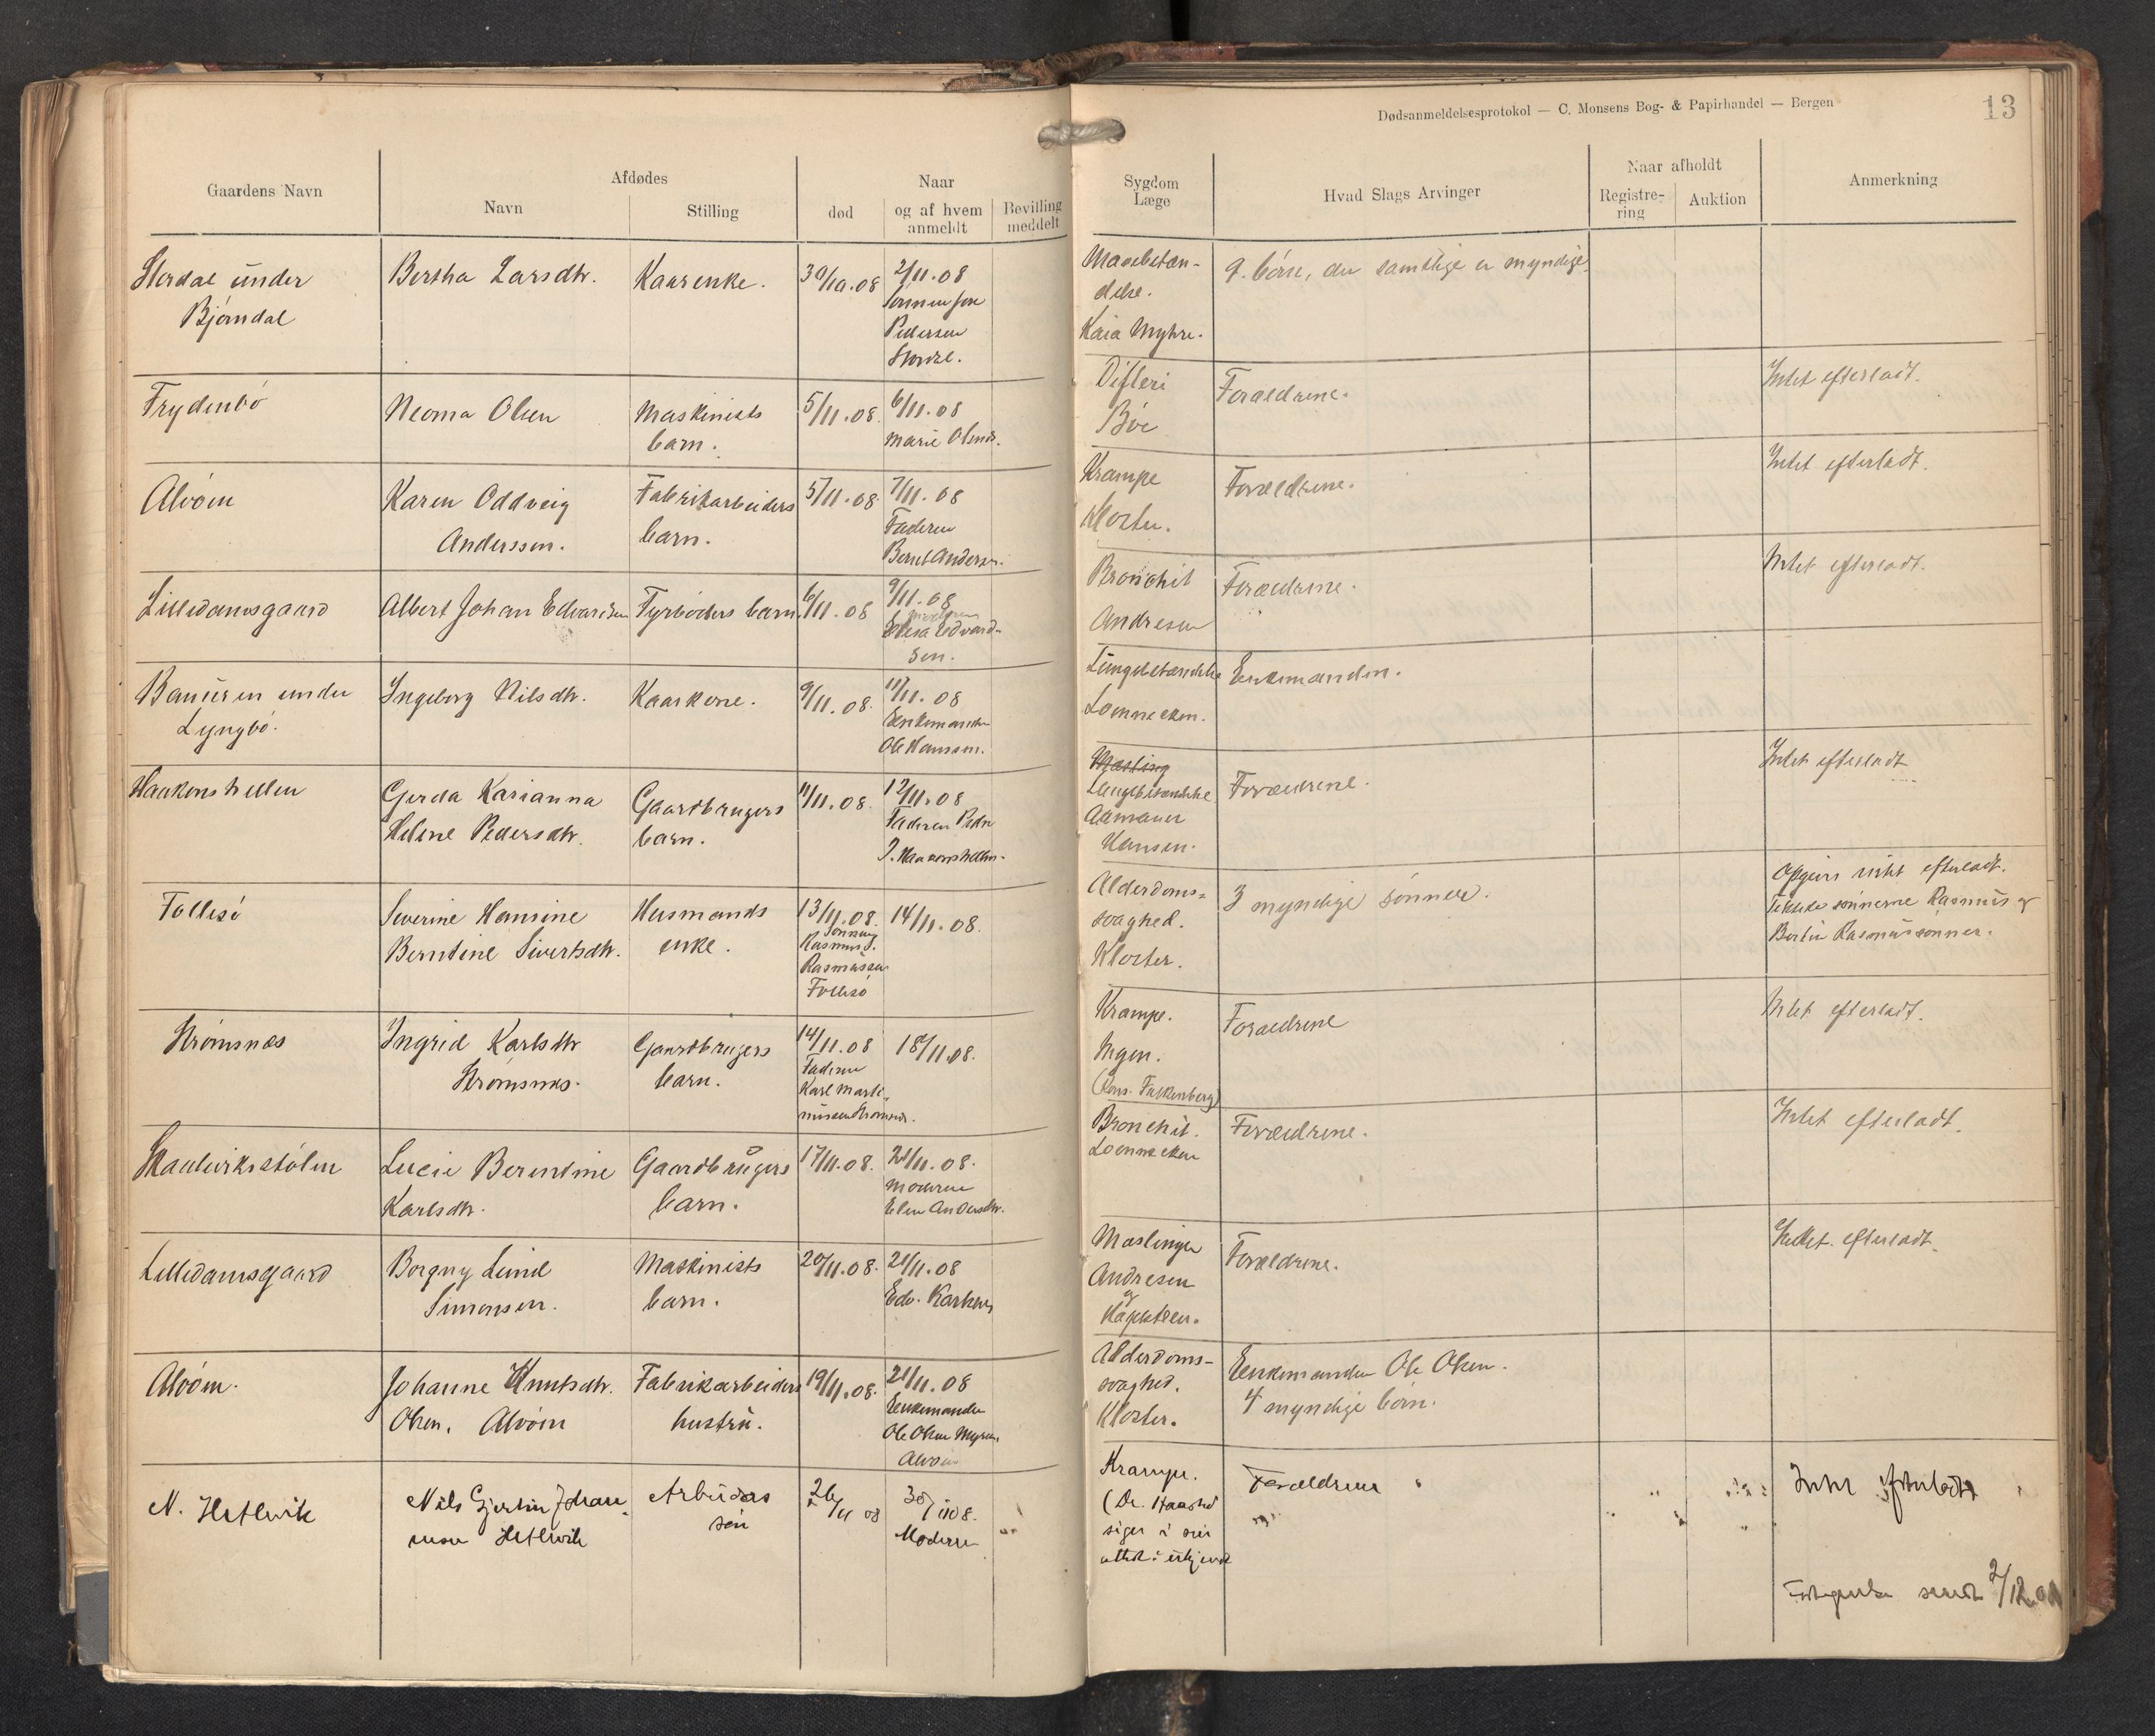 Dødsanmeldelsesprotokol — C. Monsens Bog- & Papirhandel — Bergen
13
Gaardens Navn
Afdødes
Navn
Stilling
Naar
død
og af hvem
anmeldt
Bevilling
meddelt
Sygdom
Læge
Hvad Slags Arvinger
Naar afholdt
Registre-
ring
Auktion
Anmerkning
Stordal under
Bjørndal
Bertha Larsdtr.
Kaarenke.
30/10.08
2/11.08
Pedersen
Mavebetæn-
delse.
Kaia Myhre.
9. børn, der samtlige er myndige.
Frydenbø
Neoma Olsen
Maskinists
barn.
5/11.08.
6/11.08
Marie Olsen.
Difteri
Bøe
Forældrene.
Intet efterladt.
Alvøen
Karen Oddveig
Anderssen.
Fabrikarbeiders
barn.
5/11.08
7/11.08
Faderen
Bernt Anderssen.
Krampe
Kloster.
Forældrene.
Intet efterladt.
Lilledamsgaard
Albert Johan Edvardsen
Fyrbøders barn.
6/11.08
9/11.08
Edvard-
sen.
Bronchit
Andresen
Forældrene.
Intet efterladt.
under
Lyngbø.
Ingeborg Nilsdtr.
Kaarkone.
9/11.08.
11/11.08
Enkemanden
Ole Hanssen.
Lungebetændelse
Loennecken.
Enkemanden.
Haakonshellen
Gerda Karianna
Helene Pedersdtr.
Gaardbrugers
barn.
11/11.08.
12/11.08
Faderen Peder
J. Haakonshellen.
Mæsling
Lungebetændelse
Hansen.
Forældrene.
Intet efterladt
Follesø
Severine Hansine
Berntine Sivertsdtr.
Husmands
enke.
13/11.08.
Sønnen
Rasmus S.
Rasmussen
Follesø
14/11.08.
Alderdoms-
svaghed.
Kloster.
3 myndige sønner.
Opgives intet efterladt.
sønnerne Rasmus og
Rasmussønner.
Strømsnes
Ingrid Karlsdtr
Strømsnes.
Gaardbrugers
barn.
14/11.08
Faderen
Karl Marti-
nussen Strømsnes.
18/11.08.
Krampe.
Ingen.
(Kons. Falkenberg)
Forældrene
Intet efterladt.
Lucie Berentine
Karlsdtr.
Gaardbrugers
barn.
17/11.08.
21/11.08.
Moderen
Elen Andersdtr.
Bronchit.
Loennecken
Forældrene.
Intet efterladt.
Lilledamsgaard
Borgny Lund
Simonsen.
Maskinists
barn.
20/11.08.
21/11.08
Edv. Karlsen
Mæslinger
Andresen
og
Forældrene.
Intet efterladt.
Alvøen.
Johanne Knutsdtr.
Olsen, Alvøen
Fabrikarbeiders
hustru.
19/11.08.
21/11.08
Enkemanden
Ole Olsen Myren,
Alvøen
Alderdoms-
svaghed.
Kloster.
Enkemanden Ole Olsen.
4 myndige børn.
N. Hetlevik
Nils Gjertin Johan
Hetlevik
Arbeiders
søn
26/11 08
30/11 08.
Moderen
Krampe.
(Dr. Haastad
siger i sin
attest:
Forældrene
Intet efterladt
sendt 2/12.08